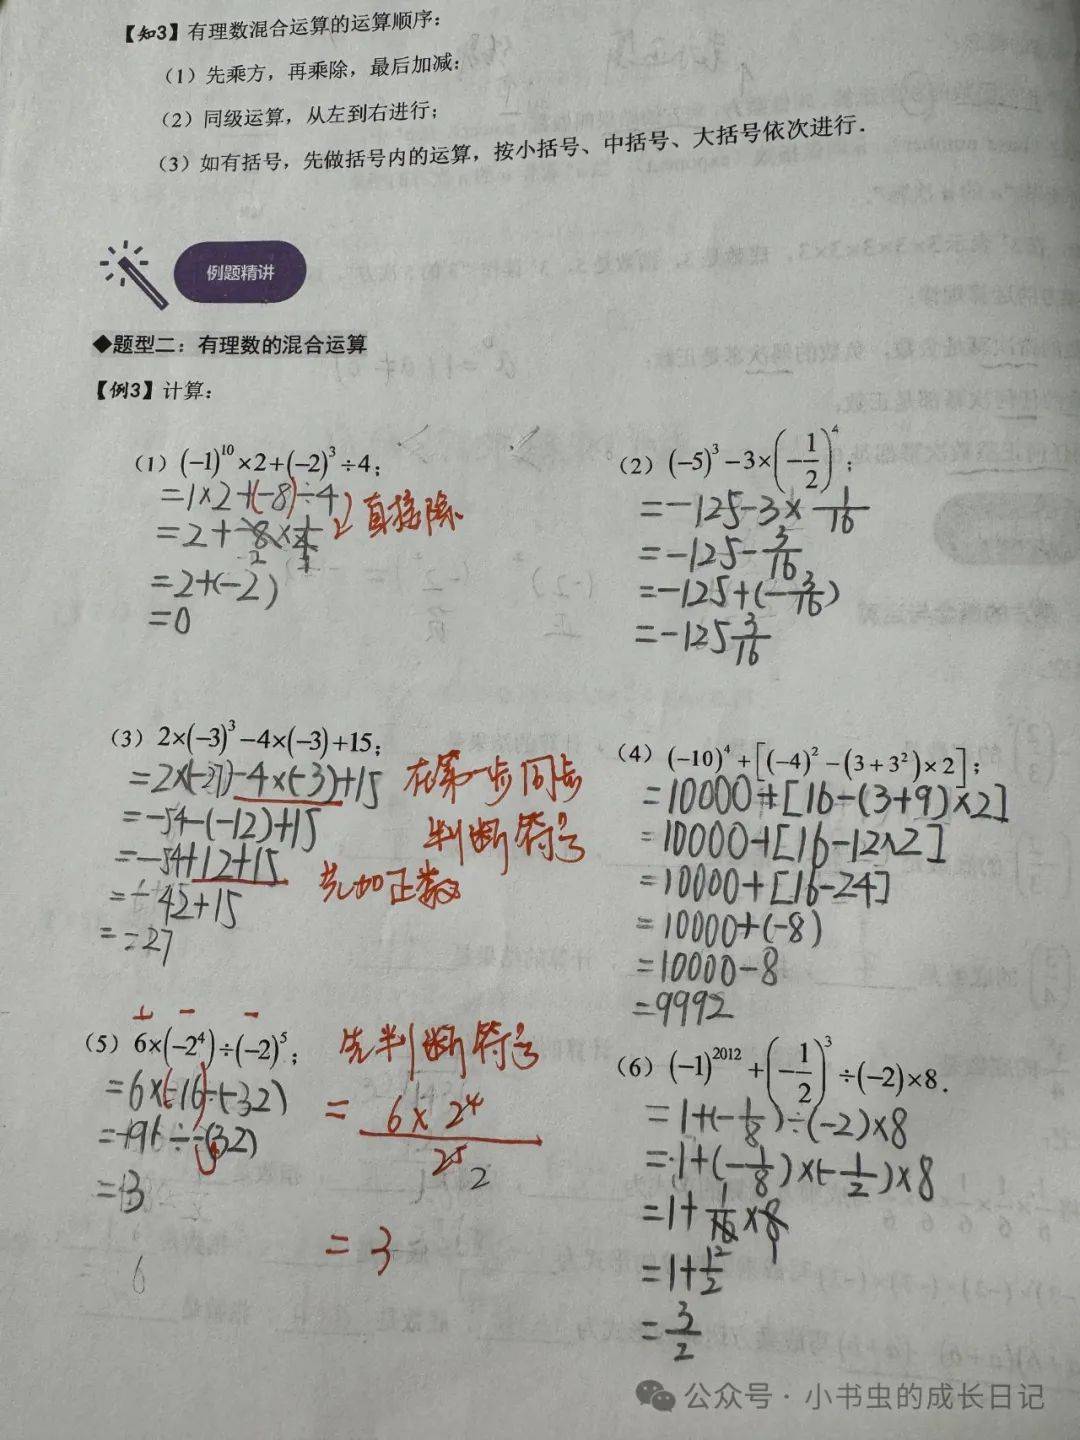 【知3】有理数混合运算的运算顺序：
（1）先乘方，再乘除，最后加减：
（2）同级运算，从左到右进行；
（3）如有括号，先做括号内的运算，按小括号、中括号、大括号依次进行．
例题精讲
◆题型二：有理数的混合运算
【例3】计算：
（1）(−1)^10×2+(−2)^3÷4；
=1×2+(-8)÷4
直接除.
=2+(-2)
=0
（2）(−5)^3−3×(−1/2)^4；
=-125-3×1/16
=-125-3/16
=-125+(-3/16)
=-125 3/16
（3）2×(−3)^3−4×(−3)+15；
=2×(-27)-4×(-3)+15
=-54-(-12)+15
=-54+12+15
=-42+15
=-27
在第一步同步
判断符号
先加正数
（4）(−10)^4+[(−4)^2−(3+3^2)×2]；
=10000+[16-(3+9)×2]
=10000+[16-12×2]
=10000+[16-24]
=10000+(-8)
=10000-8
=9992
+ − −
（5）6×(−2^4)÷(−2)^5；
=6×(-16)÷(-32)
=3
先判断符号
=6×2^4/2^5
=3
（6）(−1)^2012+(−1/2)^3÷(−2)×8．
=1+(-1/8)÷(-2)×8
=1+(-1/8)×(-1/2)×8
=1+1/16×8
=1+1/2
=3/2
公众号·小书虫的成长日记